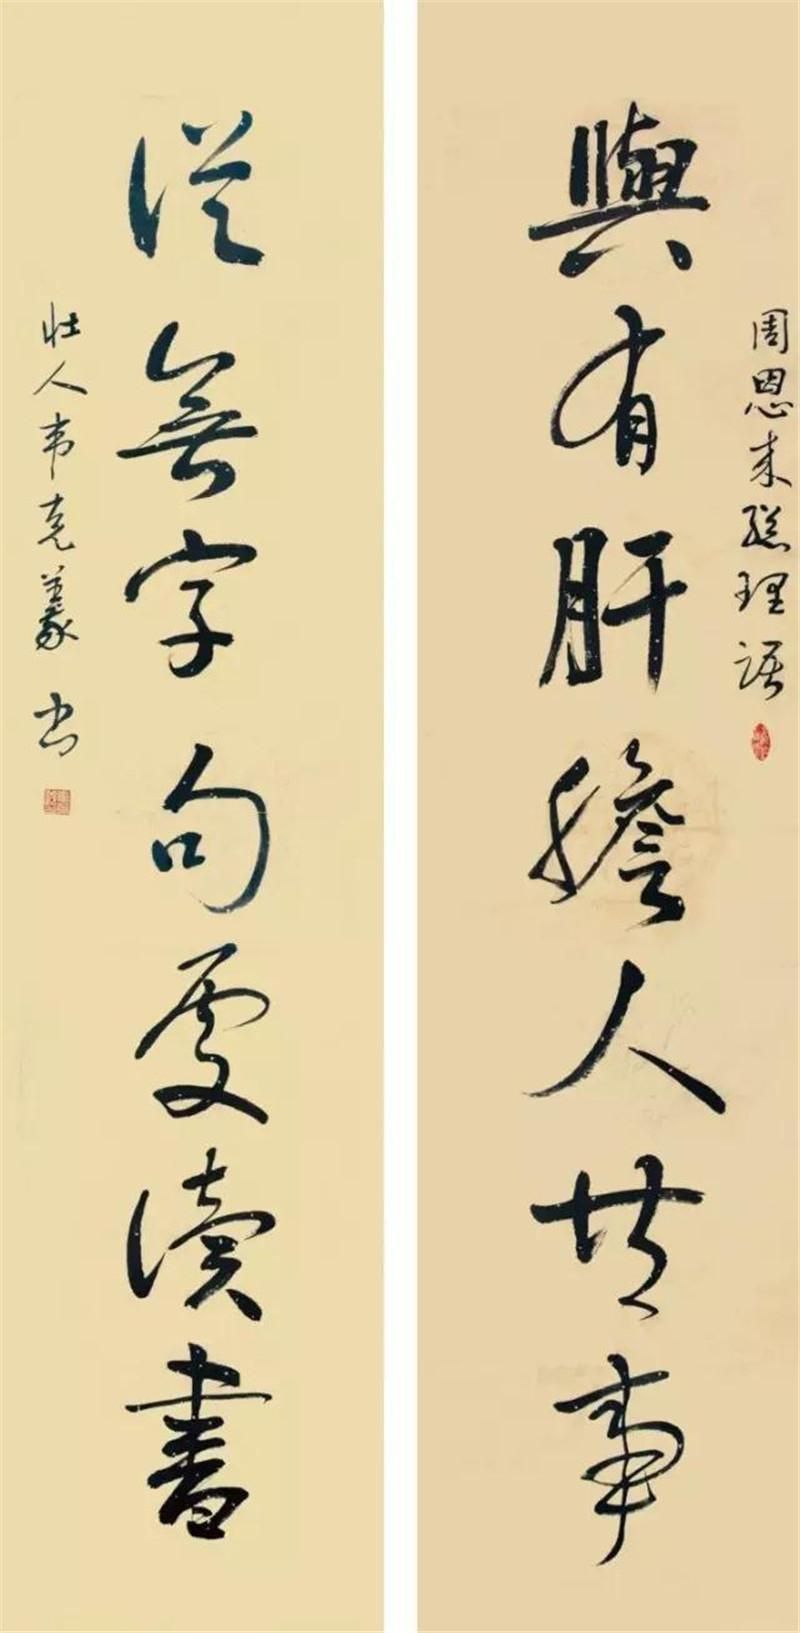 周恩来總理語
與有肝膽人共事
從無字句處讀書
壮人韦克義書